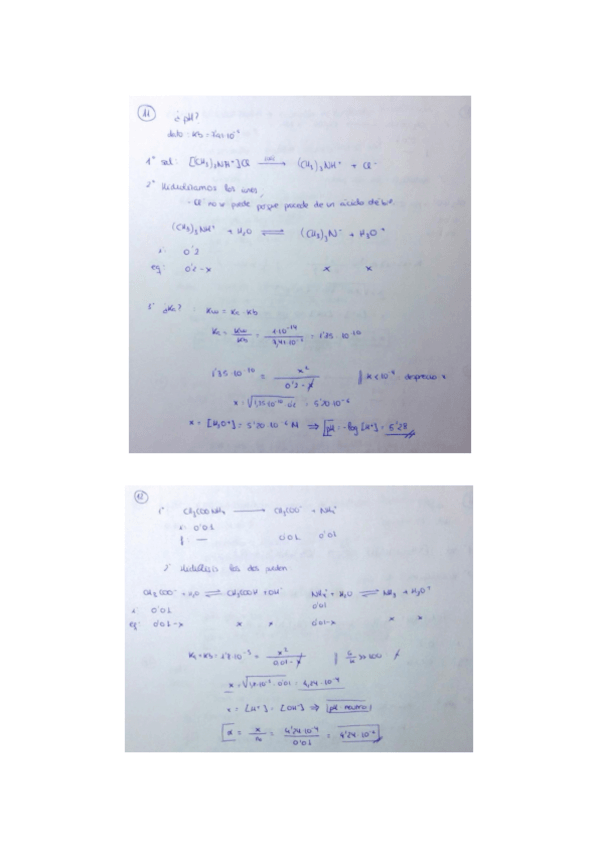 11
¿pH?
dato: Kb = 7,41·10⁻⁵
1º sal: [(CH₃)₃NH⁺]Cl ⟶ (CH₃)₃NH⁺ + Cl⁻
2º Hidrolizamos los iones
- Cl⁻ no se puede porque procede de un ácido
(CH₃)₃NH⁺ + H₂O ⇌ (CH₃)₃N⁻ + H₃O⁺
i: 0'2
eq: 0'2-x x x
3º ¿Ka? : Kw = Ka · Kb
Ka = Kw/Kb = 1·10⁻¹⁴/7,41·10⁻⁵ = 1'35·10⁻¹⁰
1'35·10⁻¹⁰ = x²/0'2-x K<10⁻⁴ desprecio x
x = √1,35·10⁻¹⁰·0'2 = 5'20·10⁻⁶
x = [H₃O⁺] = 5'20·10⁻⁶ M ⟹ pH = -log [H⁺] = 5'28
12
1º CH₃COONH₄ ⟶ CH₃COO⁻ + NH₄⁺
i: 0'01
f: — 0'01 0'01
2º Hidrólisis los dos pueden
CH₃COO⁻ + H₂O ⇌ CH₃COOH + OH⁻ NH₄⁺ + H₂O ⇌ NH₃ + H₃O⁺
i: 0'01 0'01
eq: 0'01-x x x 0'01-x x x
Ka = Kb = 1'8·10⁻⁵ = x²/0'01-x
x = √1,8·10⁻⁵·0'01 = 4,24·10⁻⁴
x = [H⁺] = [OH⁻] ⟹ pH neutro
α = x/c₀ = 4'24·10⁻⁴/0'01 = 4'24·10⁻²